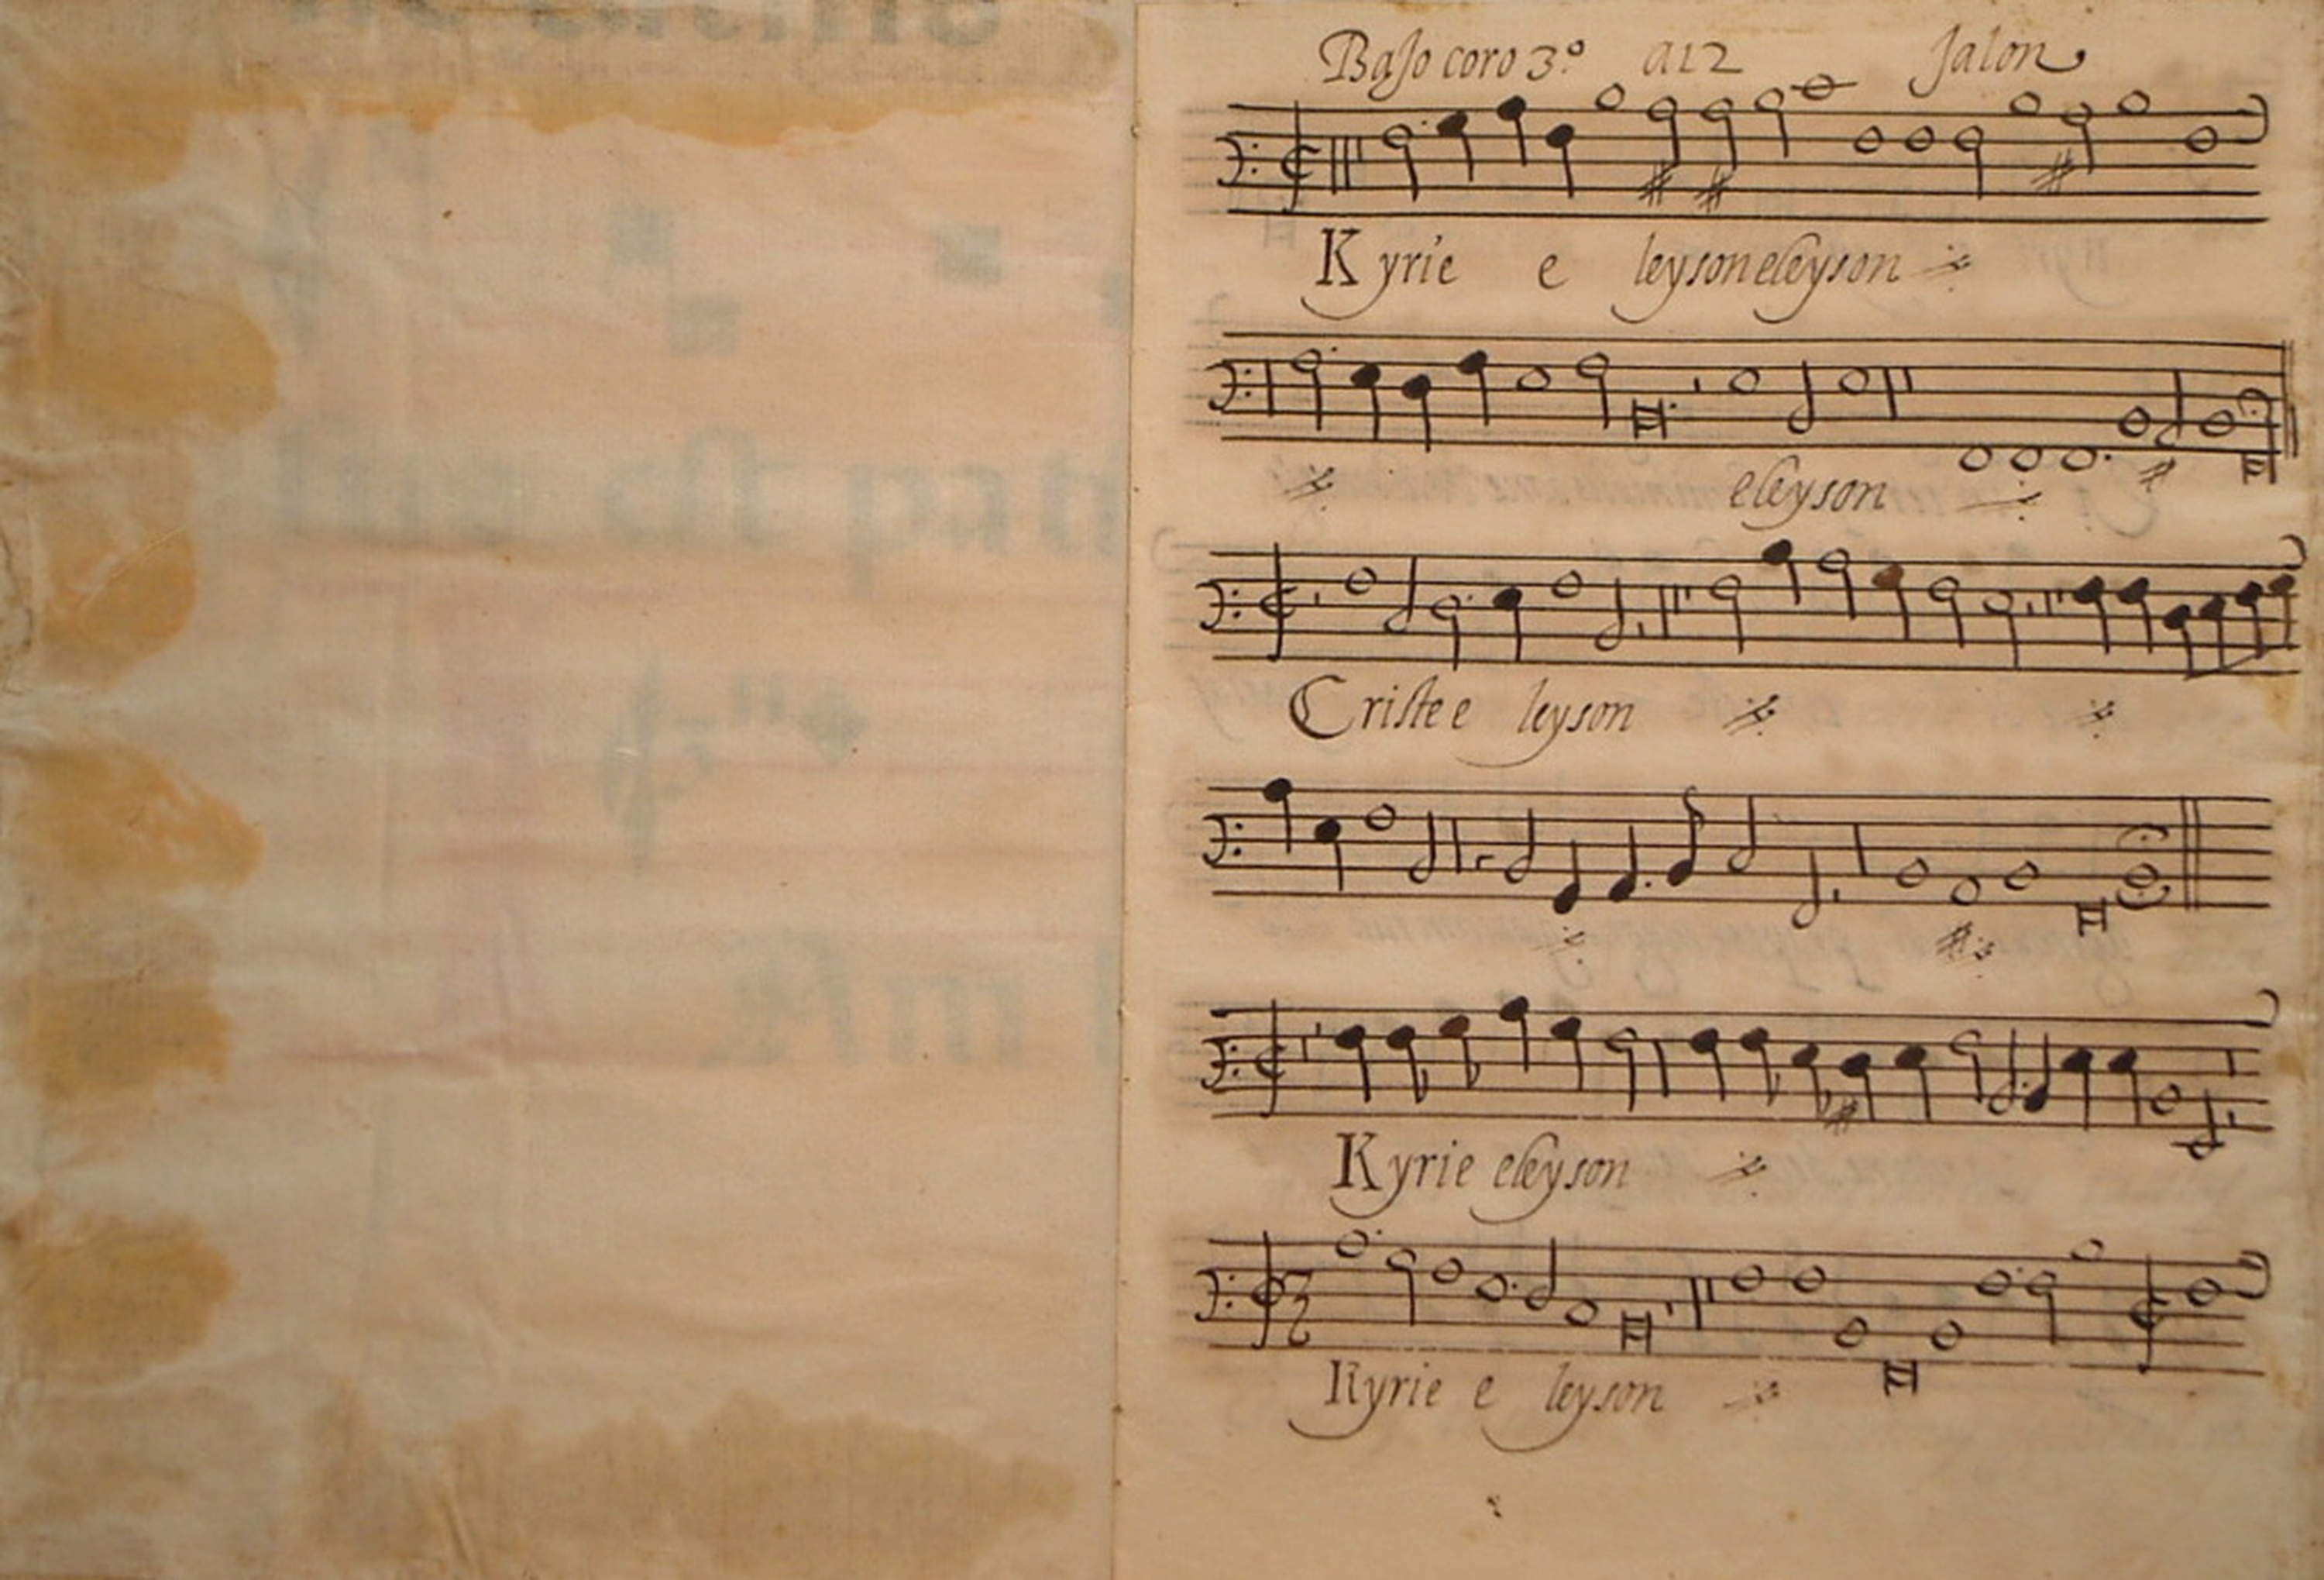 Baso coro 3º a12 Jalon
Kyrie e leyson eleyson
eleyson
Criste e leyson
Kyrie eleyson
Kyrie e leyson